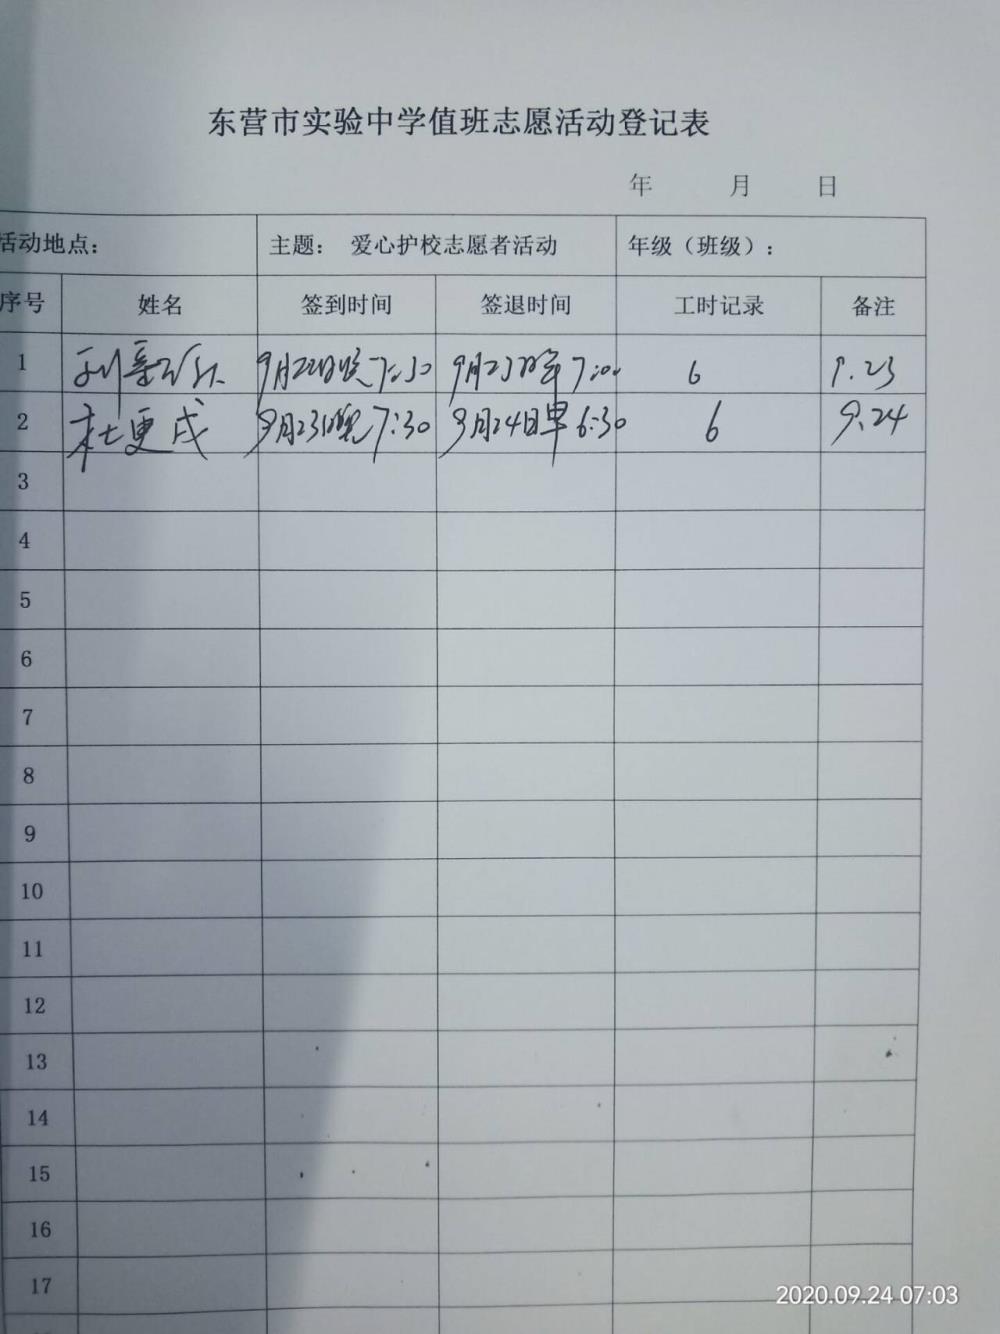 东营市实验中学值班志愿活动登记表
年 月 日
活动地点： 主题： 爱心护校志愿者活动 年级（班级）：
序号 姓名 签到时间 签退时间 工时记录 备注
1 9月22日晚7:30 9月23日 7:00 6 9.23
2 杜更戌 9月23日晚7:30 9月24日早6:30 6 9.24
3
4
5
6
7
8
9
10
11
12
13
14
15
16
17
2020.09.24 07:03